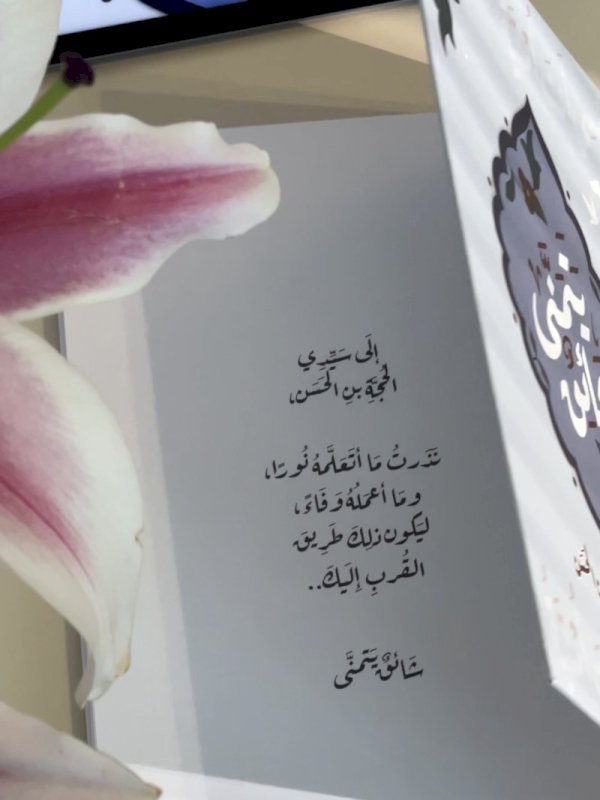 إلَى سَيِّدِي
الحُجَّةِ بنِ الحَسَن،
نَذَرتُ مَا أتَعَلَّمهُ نُورًا،
ومَا أعمَلُهُ وَفَاءً،
ليَكون ذلِكَ طَرِيقَ
القُربِ إلَيكَ..
شَائقٌ يَتَمنَّى
يَتَمَنَّى
شَائقٌ